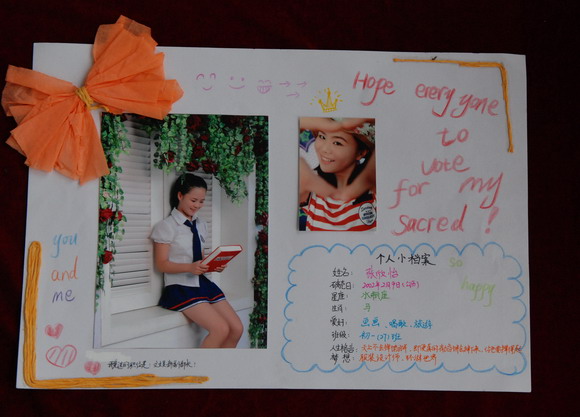 Hope everyone
to
vote
for my
sacred!
you
and
me
so
happy
个人小档案
姓名: 张欣怡
破壳日: 2002年2月9日
星座: 水瓶座
生肖: 马
爱好: 画画、唱歌、旅游
班级: 初一(7)班
人生格言:
梦想: 服装设计师, 环游世界